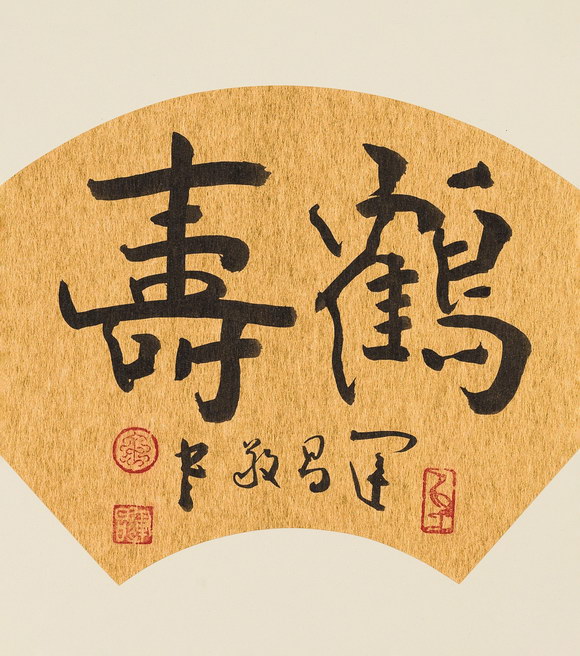 鶴壽
運昌敬书